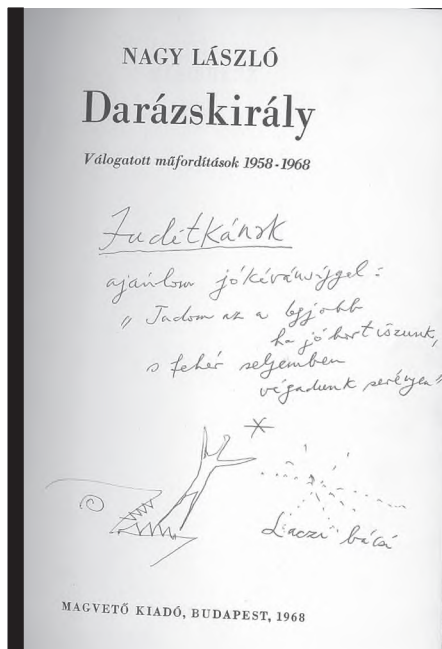 NAGY LÁSZLÓ
Darázskirály
Válogatott műfordítások 1958-1968
Juditkának
ajánlom jókívánsággal:
„Tudom az a legjobb
ha jó bort iszunk,
s fehér selyemben
végadunk serényen”
Laczi bácsi
MAGVETŐ KIADÓ, BUDAPEST, 1968